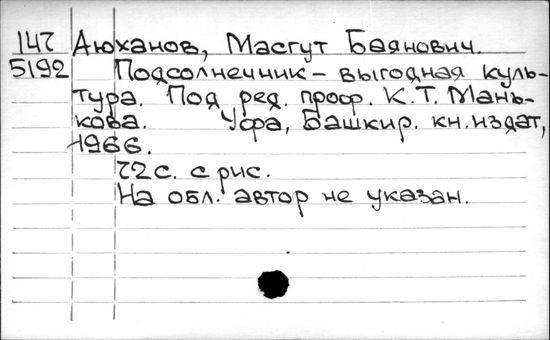 147 Аюханов, Масгут Баянович.
5192 Подсолнечник – выгодная куль-
тура. Под ред. проф. К.Т. Мань-
кова. Уфа, Башкир. кн. издат,
1966.
72 с. с рис.
На обл. автор не указан.